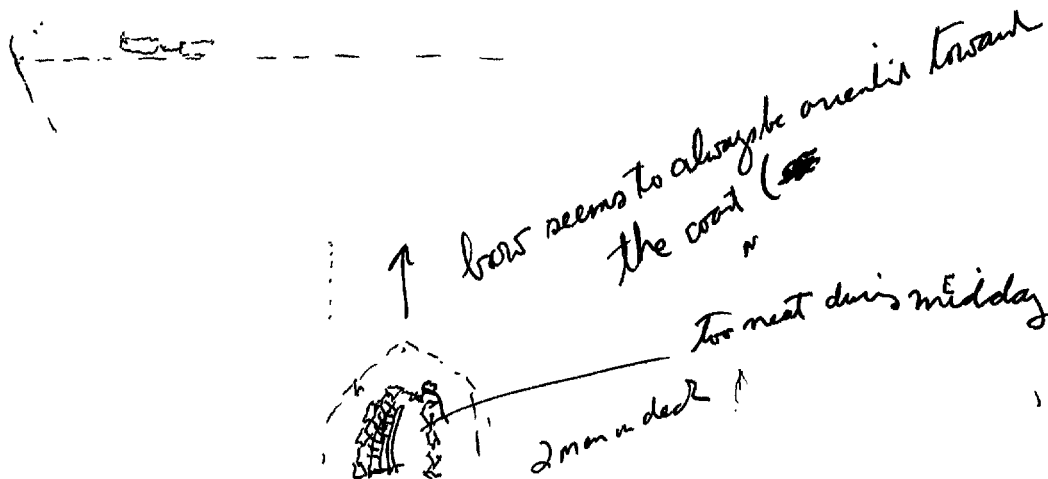 bow seems to always be oriented toward
the coast (
N
too neat during midday
E
2 men on deck